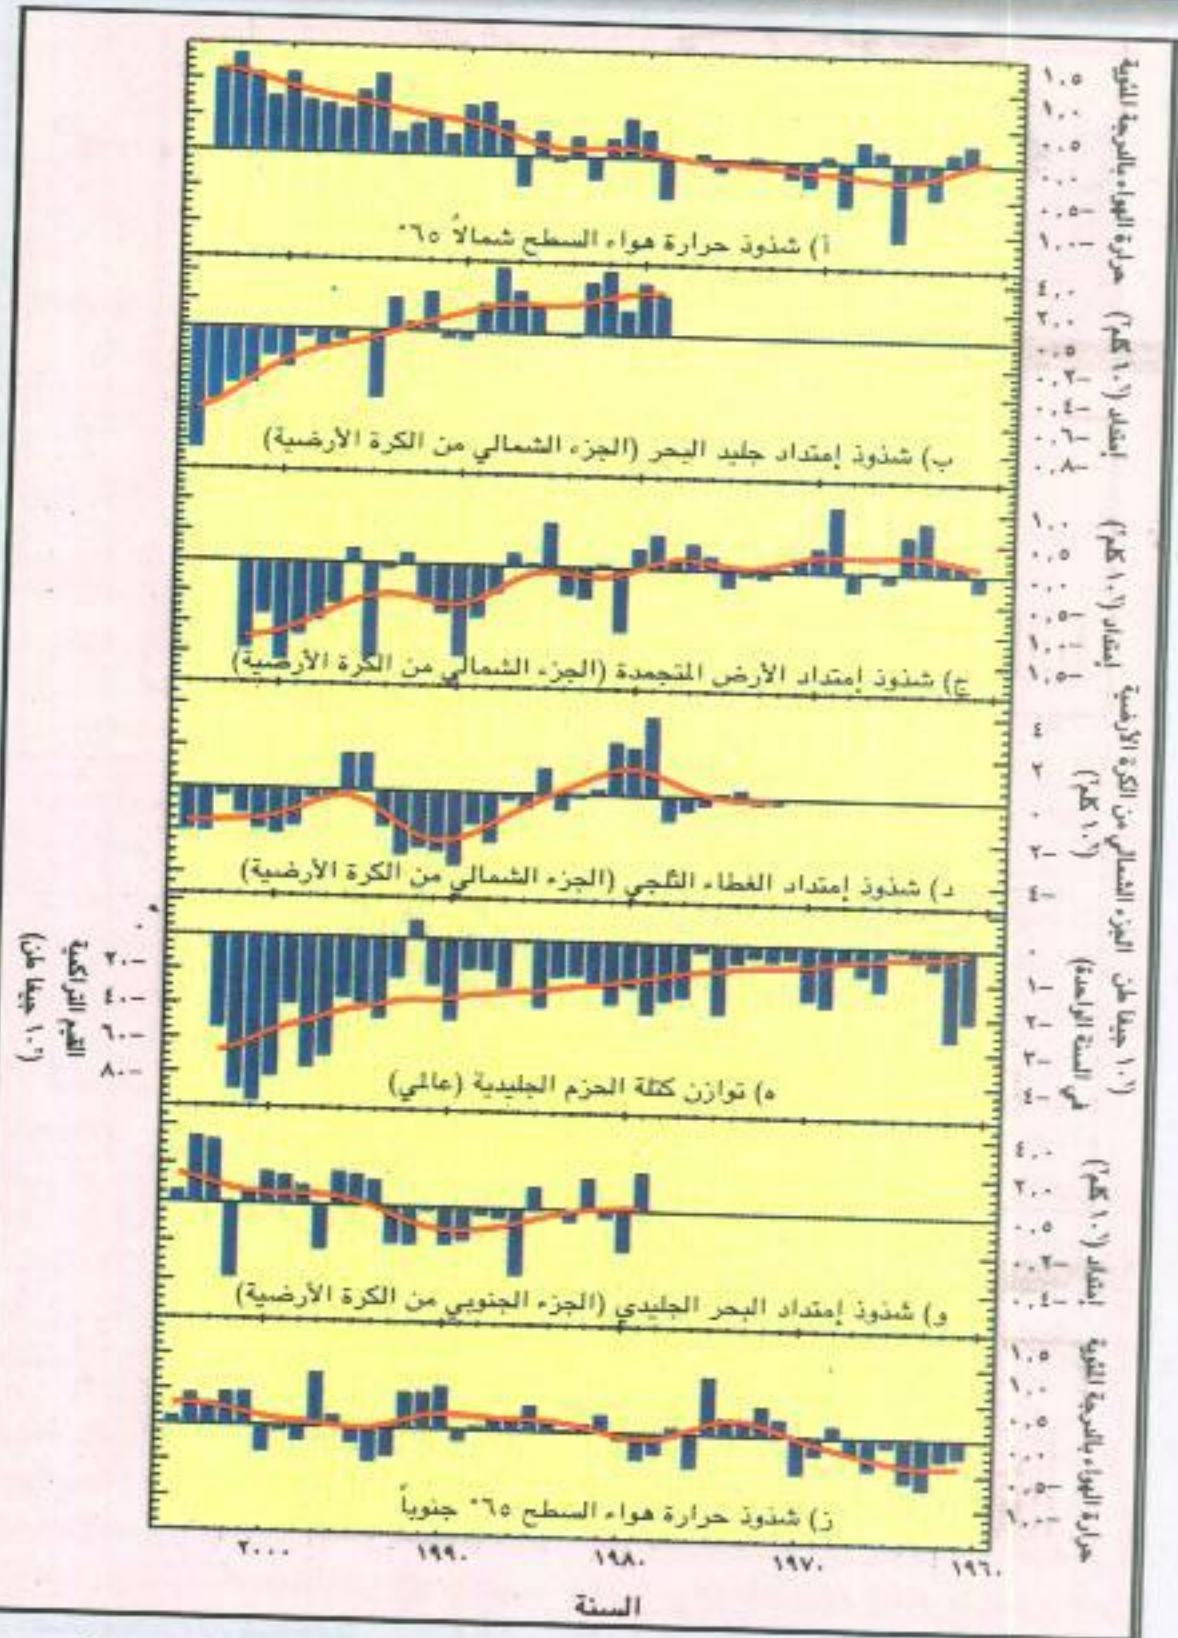 حرارة الهواء بالدرجة المئوية
١.٥
١.٠
٠.٥
٠.٠
٠.٥–
١.٠–
أ) شذوذ حرارة هواء السطح شمالاً ٦٥°
إمتداد (١٠٦ كلم٢)
٤.٠
٢.٠
٠.٥
٠.٢–
٠.٤–
٠.٦–
٠.٨–
ب) شذوذ إمتداد جليد البحر (الجزء الشمالي من الكرة الأرضية)
إمتداد (١٠٦ كلم٢)
١.٠
٠.٥
٠.٠
٠.٥–
١.٠–
١.٥–
ج) شذوذ إمتداد الأرض المتجمدة (الجزء الشمالي من الكرة الأرضية)
الجزء الشمالي من الكرة الأرضية
(١٠٦ كلم٢)
٤
٢
٠
٢–
٤–
د) شذوذ إمتداد الغطاء الثلجي (الجزء الشمالي من الكرة الأرضية)
(١٠٢ جيغا طن
في السنة الواحدة)
٠
١–
٢–
٣–
٤–
٠
٢٠–
٤٠–
٦٠–
٨٠–
القيم التراكمية
(١٠٢ جيغا طن)
ه) توازن كتلة الحزم الجليدية (عالمي)
إمتداد (١٠٦ كلم٢)
٤.٠
٢.٠
٠.٥
٠.٢–
٠.٤–
و) شذوذ إمتداد البحر الجليدي (الجزء الجنوبي من الكرة الأرضية)
حرارة الهواء بالدرجة المئوية
١.٥
١.٠
٠.٥
٠.٠
٠.٥–
١.٠–
ز) شذوذ حرارة هواء السطح ٦٥° جنوباً
٢٠٠٠ ١٩٩٠ ١٩٨٠ ١٩٧٠ ١٩٦٠
السنة